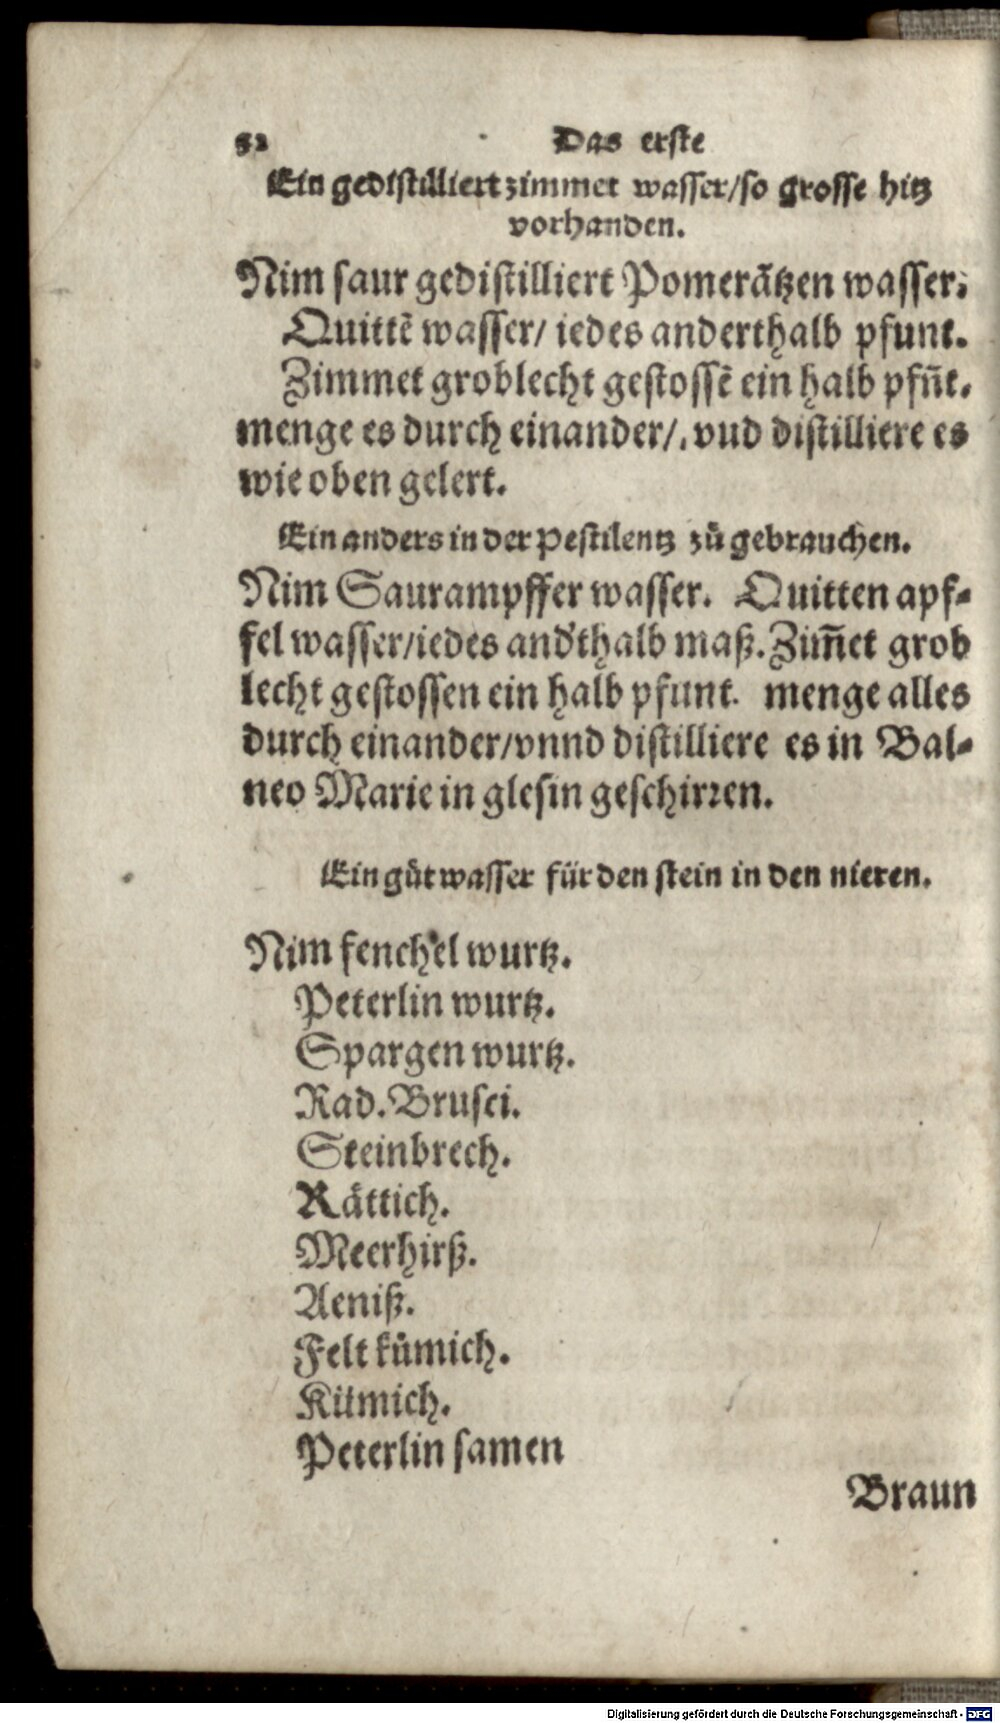 52 Das erste
Ein gedistilliert zimmet wasser/so grosse hitz
vorhanden.
Nim saur gedistilliert Pomerãtzen wasser.
Quittẽ wasser/ iedes anderthalb pfunt.
Zimmet groblecht gestossẽ ein halb pfũt.
menge es durch einander/. vud distilliere es
wie oben gelert.
Ein anders in der pestilentz zů gebrauchen.
Nim Saurampffer wasser. Quitten apf-
fel wasser/iedes and'thalb maß. Zim̃et grob
lecht gestossen ein halb pfunt. menge alles
durch einander/vnnd distilliere es in Bal-
neo Marie in glesin geschirren.
Ein gůt wasser für den stein in den nieren.
Nim fenchel wurtz.
Peterlin wurtz.
Spargen wurtz.
Rad. Brusci.
Steinbrech.
Rättich.
Meerhirß.
Aeniß.
Felt kümich.
Kümich.
Peterlin samen
Braun
Digitalisierung gefördert durch die Deutsche Forschungsgemeinschaft - DFG